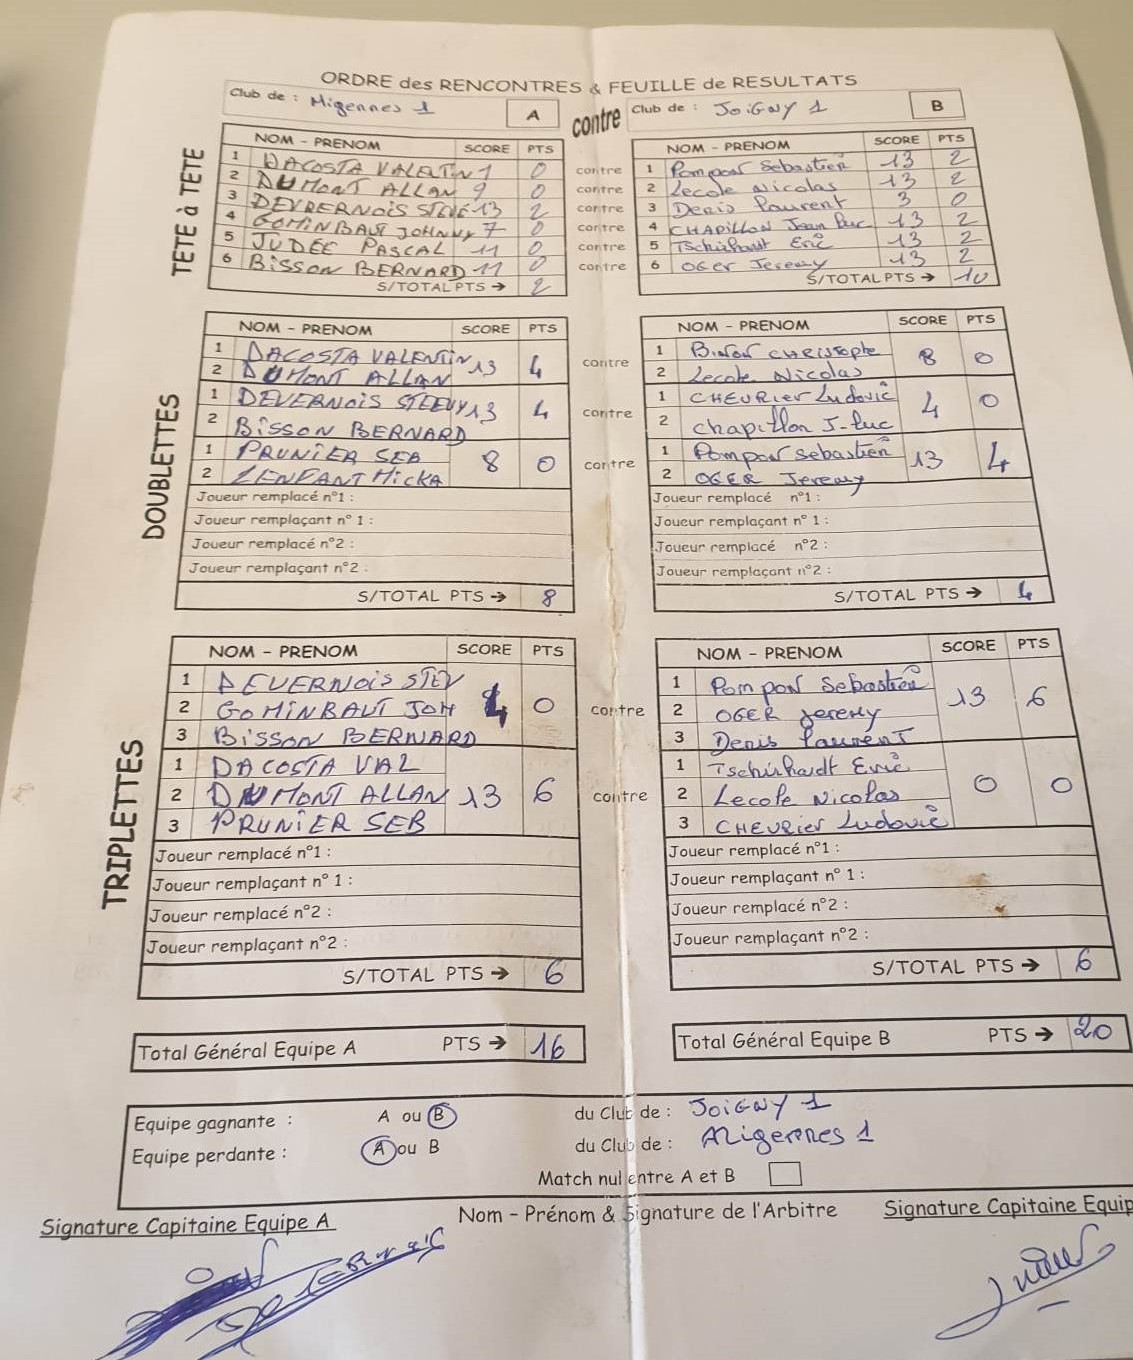 ORDRE des RENCONTRES & FEUILLE de RESULTATS
Club de : Migennes 1 A contre Club de : JOIGNY 1 B
TÊTE à TÊTE
NOM - PRENOM SCORE PTS NOM - PRENOM SCORE PTS
1 DACOSTA VALENTIN 1 0 contre 1 Pompon Sébastien 13 2
2 DUMONT ALLAN 9 0 contre 2 Lecole Nicolas 13 2
3 DEVRERNOIS STEVE 13 2 contre 3 Denis Laurent 3 0
4 GOMINBAUT JOHNNY 7 0 contre 4 CHAPILLON Jean Luc 13 2
5 JUDÉE PASCAL 11 0 contre 5 Tschirhardt Eric 13 2
6 BISSON BERNARD 11 0 contre 6 OGER Jeremy 13 2
S/TOTAL PTS → 2 S/TOTAL PTS → 10
DOUBLETTES
NOM - PRENOM SCORE PTS NOM - PRENOM SCORE PTS
1 DACOSTA VALENTIN 13 4 contre 1 Binon CHRISTOPHE 8 0
2 DUMONT ALLAN 2 Lecole Nicolas
1 DEVERNOIS STEEVY 13 4 contre 1 CHEVRIER Ludovic 4 0
2 BISSON BERNARD 2 Chapillon J-Luc
1 PRUNIER SEB 8 0 contre 1 Pompon Sébastien 13 4
2 LENFANT Micka 2 OGER Jeremy
Joueur remplacé n°1 : Joueur remplacé n°1 :
Joueur remplaçant n° 1 : Joueur remplaçant n° 1 :
Joueur remplacé n°2 : Joueur remplacé n°2 :
Joueur remplaçant n°2 : Joueur remplaçant n°2 :
S/TOTAL PTS → 8 S/TOTAL PTS → 4
TRIPLETTES
NOM - PRENOM SCORE PTS NOM - PRENOM SCORE PTS
1 DEVERNOIS STEV 1 Pompon Sébastien
2 GOMINBAUT JOH 4 0 contre 2 OGER Jeremy 13 6
3 BISSON BERNARD 3 Denis Laurent
1 DACOSTA VAL 1 Tschirhardt Eric
2 DUMONT ALLAN 13 6 contre 2 Lecole Nicolas 0 0
3 PRUNIER SEB 3 CHEVRIER Ludovic
Joueur remplacé n°1 : Joueur remplacé n°1 :
Joueur remplaçant n° 1 : Joueur remplaçant n° 1 :
Joueur remplacé n°2 : Joueur remplacé n°2 :
Joueur remplaçant n°2 : Joueur remplaçant n°2 :
S/TOTAL PTS → 6 S/TOTAL PTS → 6
Total Général Equipe A PTS → 16 Total Général Equipe B PTS → 20
Equipe gagnante : A ou B du Club de : JOIGNY 1
Equipe perdante : A ou B du Club de : Migennes 1
Match nul entre A et B
Signature Capitaine Equipe A Nom - Prénom & Signature de l'Arbitre Signature Capitaine Equip